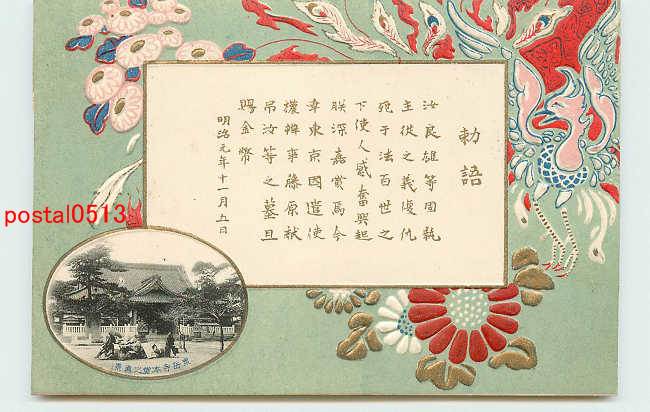 勅語
汝良雄等固執
主従之義復仇
死于法百世之
下使人感奮興起
朕深嘉賞焉今
幸東京因遣使
権弁事藤原献
吊汝等之墓且
賜金幣
明治元年十一月五日
泉岳寺本堂之真景
postal0513